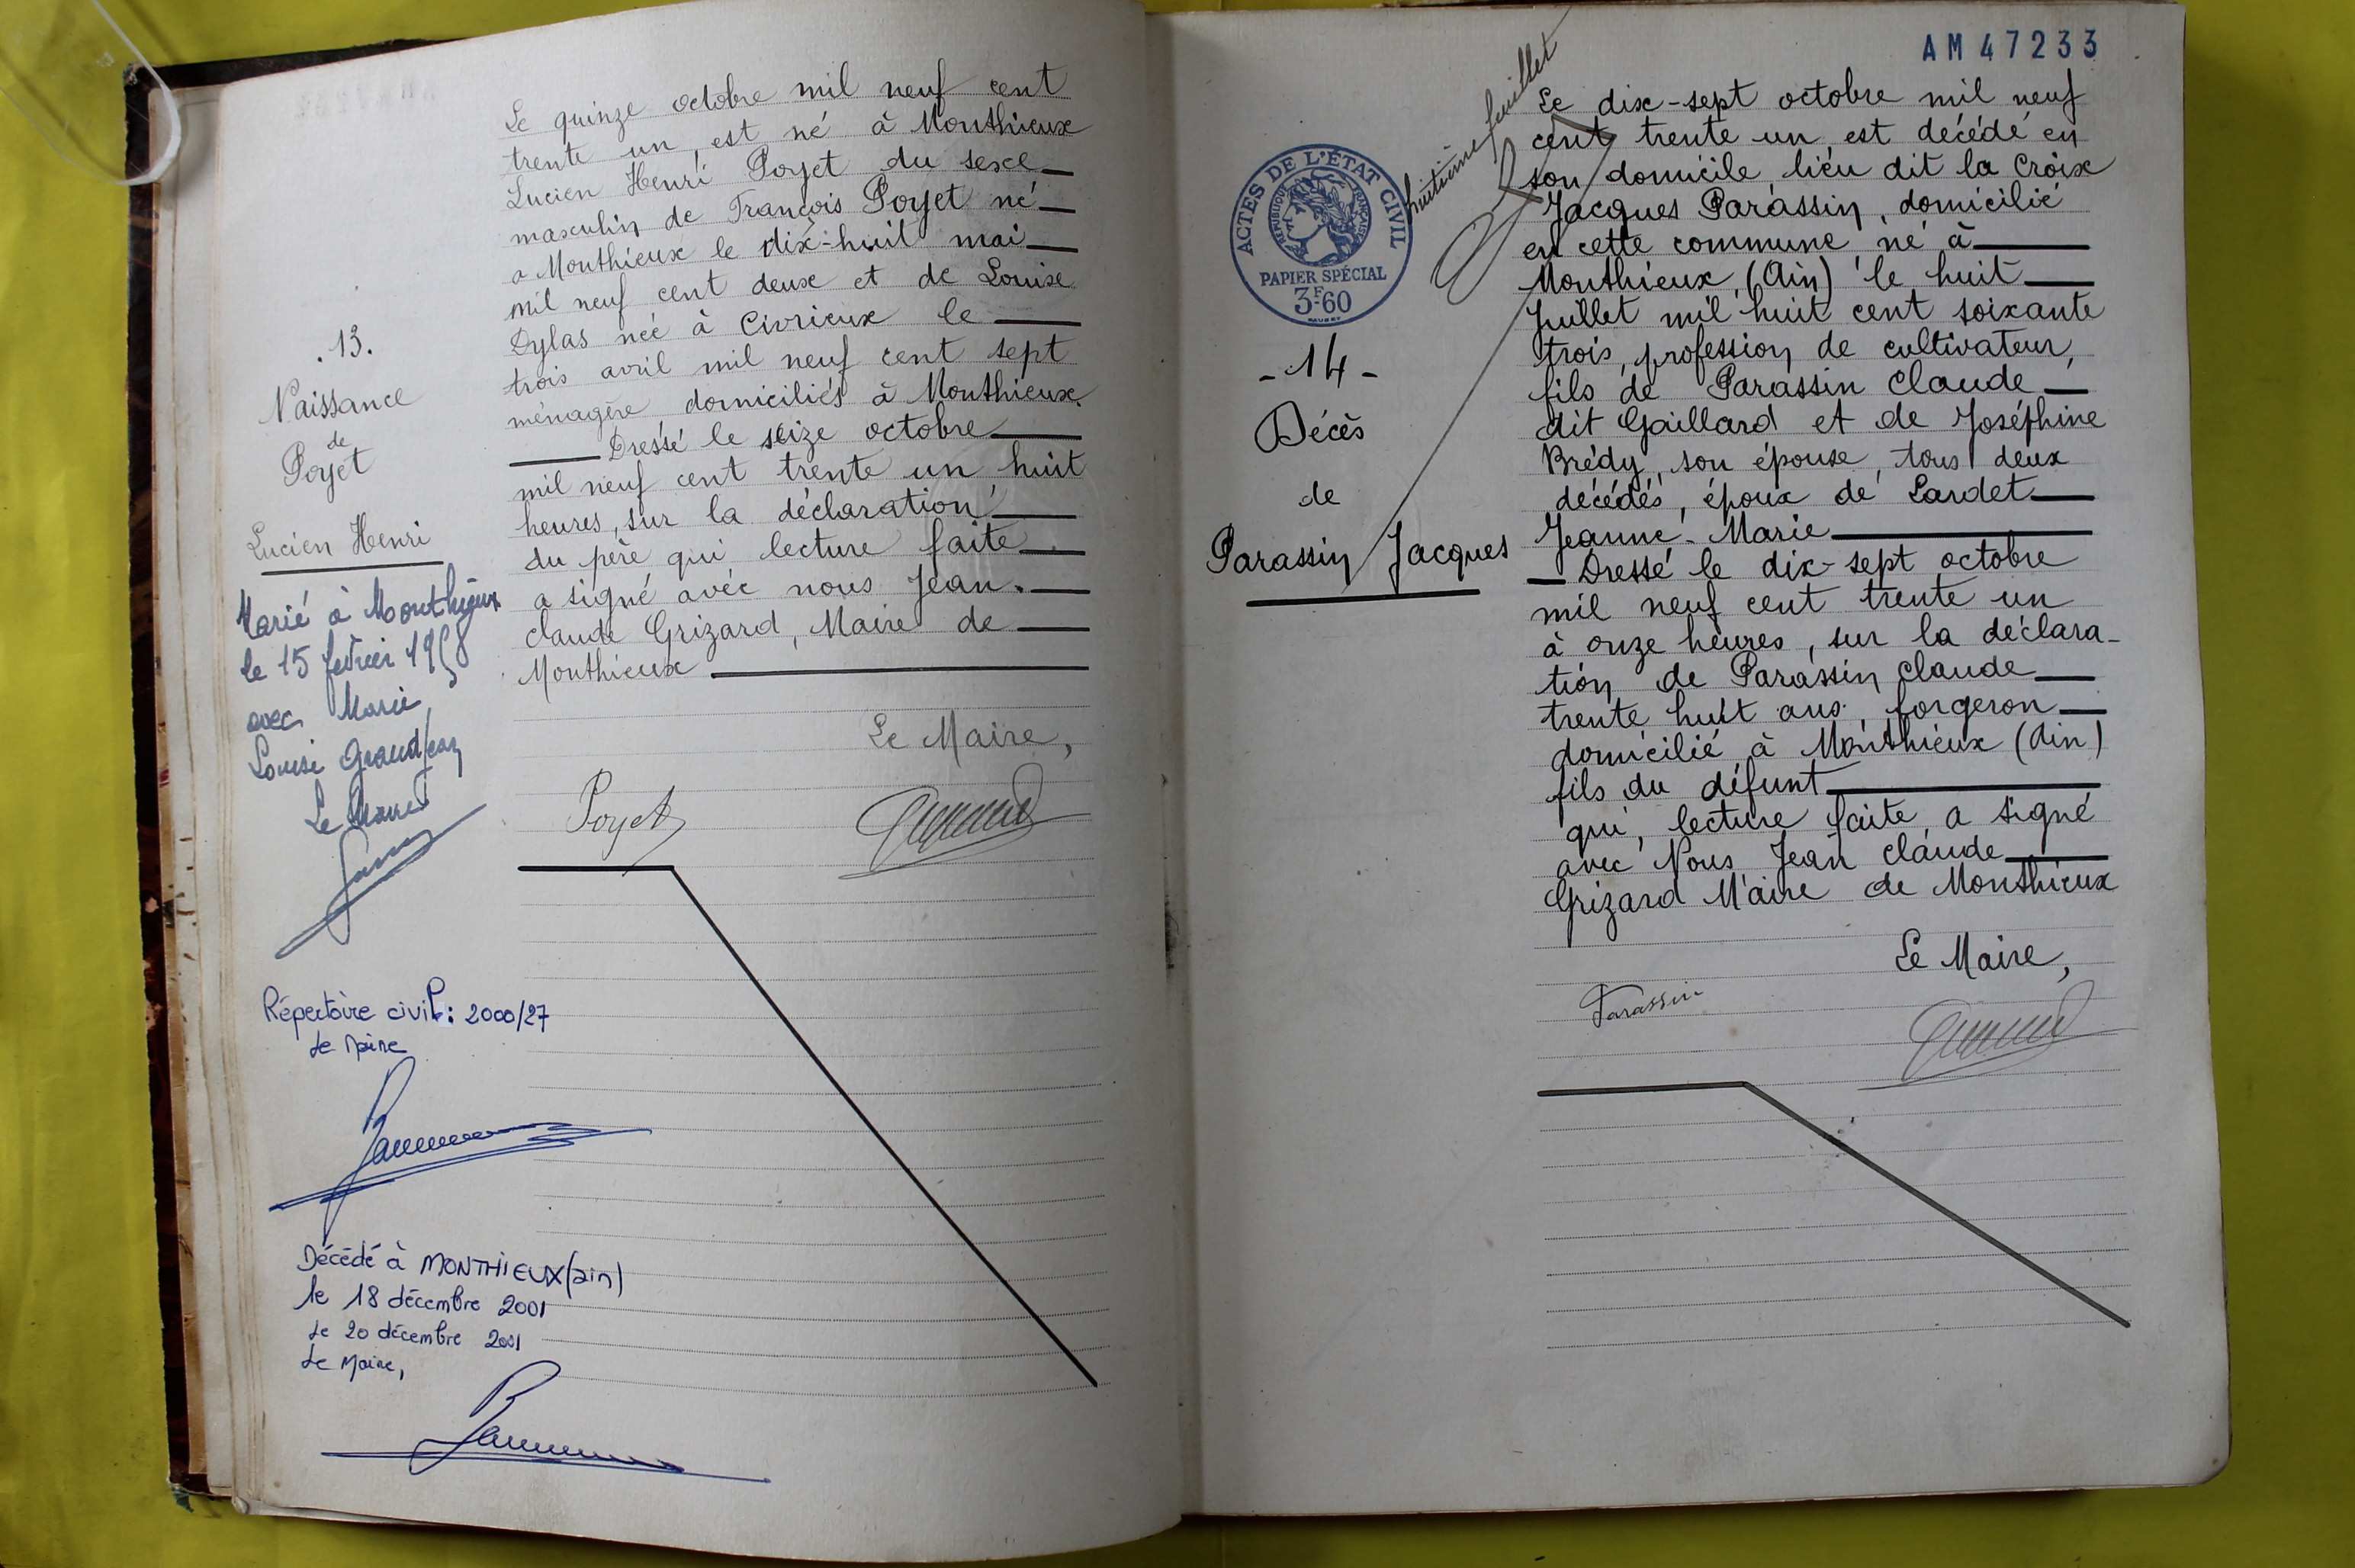 .13.
Naissance
de
Poyet
Lucien Henri
Marié à Monthieux
le 15 février 1958
avec Marie
Louise Grandjean
Le Maire
Répertoire civil: 2000/27
Le Maire
Décédé à MONTHIEUX (ain)
le 18 décembre 2001
Le 20 décembre 2001
Le Maire,
Le quinze octobre mil neuf cent
trente un, est né à Monthieux
Lucien Henri Poyet du sexe
masculin de François Poyet né
a Monthieux le dix-huit mai
mil neuf cent deux et de Louise
Dylas née à Civrieux le
trois avril mil neuf cent sept
ménagère domiciliés à Monthieux.
Dressé le seize octobre
mil neuf cent trente un huit
heures, sur la déclaration
du père qui, lecture faite
a signé avec nous Jean.
Claude Grizard, Maire de
Monthieux
Le Maire,
Poyet
AM47233
huitième feuillet
ACTES DE L'ÉTAT CIVIL
RÉPUBLIQUE FRANÇAISE
PAPIER SPÉCIAL
3F60
- 14 -
Décès
de
Parassin Jacques
Le dix-sept octobre mil neuf
cent trente un, est décédé en
son domicile, lieu dit la Croix
Jacques Parassin, domicilié
en cette commune, né à
Monthieux, (Ain) le huit
Juillet mil huit cent soixante
trois, profession de cultivateur,
fils de Parassin Claude
dit Gaillard et de Joséphine
Brédy, son épouse, tous deux
décédés, époux de Lardet
Jeanne-Marie
Dressé le dix-sept octobre
mil neuf cent trente un
à onze heures, sur la déclara-
tion de Parassin Claude
trente huit ans, forgeron
domicilié à Monthieux (Ain)
fils du défunt
qui, lecture faite, a signé
avec Nous Jean Claude
Grizard Maire de Monthieux
Le Maire,
Parassin